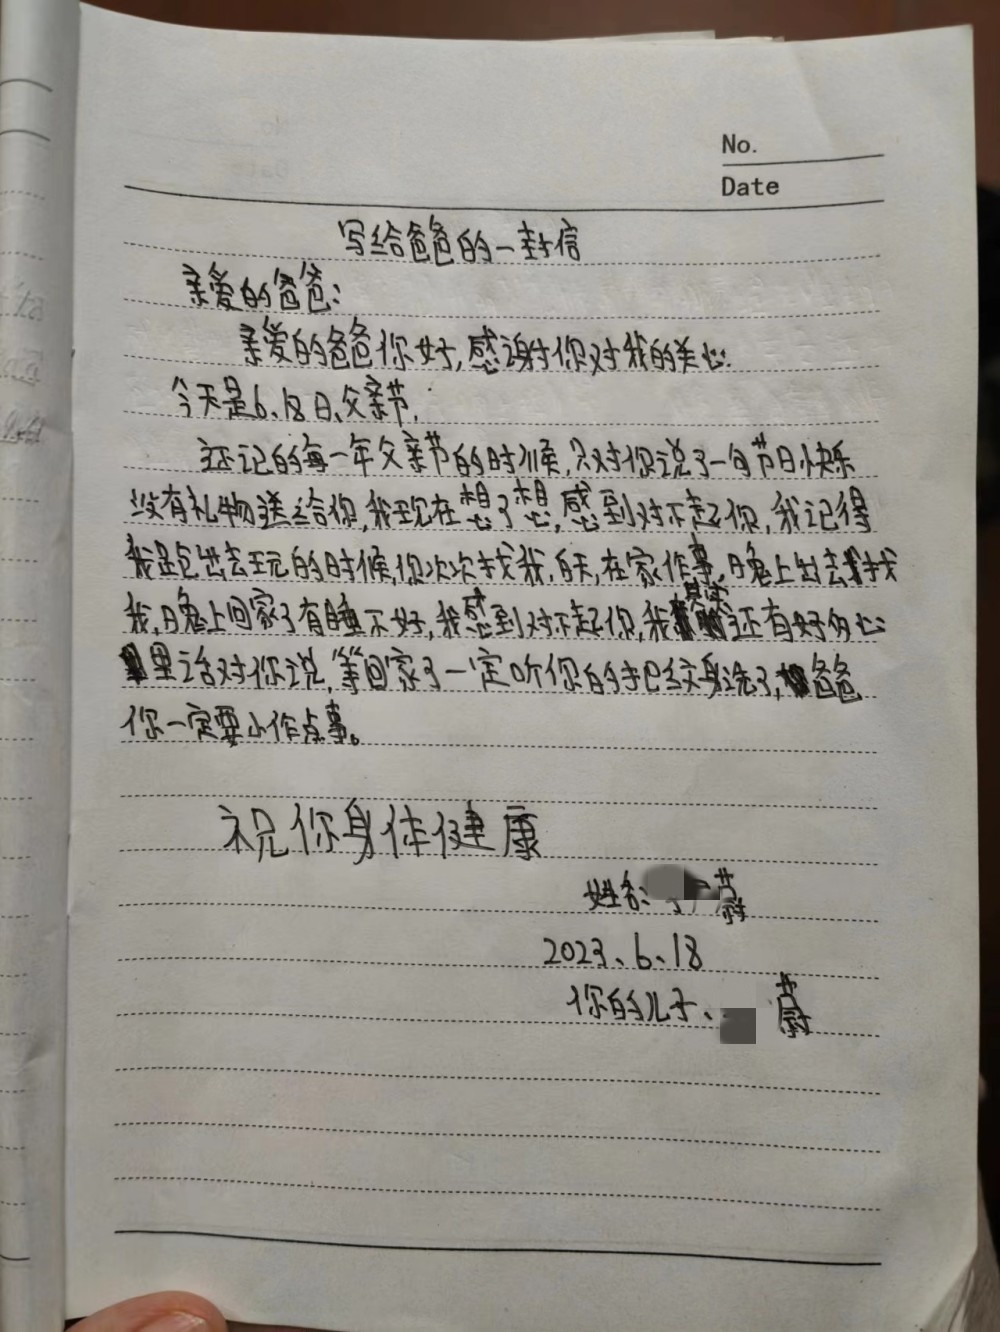 No.
Date
写给爸爸的一封信
亲爱的爸爸：
亲爱的爸爸你好,感谢你对我的关心.
今天是6、18日、父亲节.
还记的每一年父亲节的时候,只对你说了一句节日快乐
没有礼物送给你,我现在想了想,感到对不起你,我记得
我是包出去玩的时候,你次次找我,白天,在家作事,晚上出去找
我,晚上回家了有睡不好,我感到对不起你,我其实还有好多心
里话对你说,等回家了一定听你的手巴纹身洗了,爸爸
你一定要小作点事。
祝你身体健康
姓名：
2023、6、18
你的儿子、